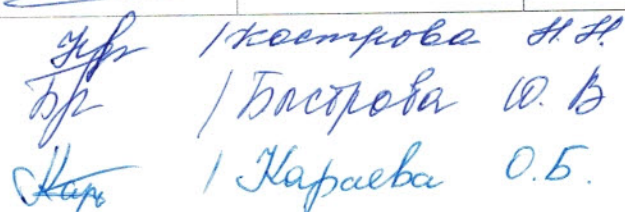 / Кострова Н. Н.
Бр / Быстрова Ю. В
/ Караева О. Б.